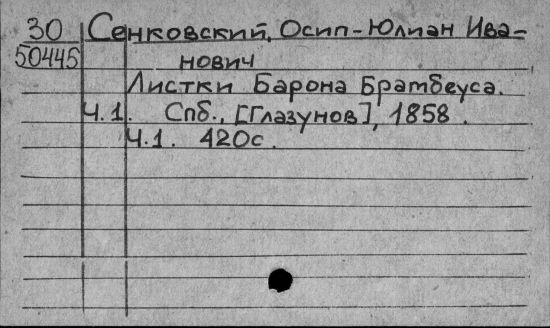 30 Сенковский, Осип-Юлиан Ива-
50445 нович
Листки Барона Брамбеуса.
Ч.1. Спб., [Глазунов], 1858.
Ч.1. 420с.